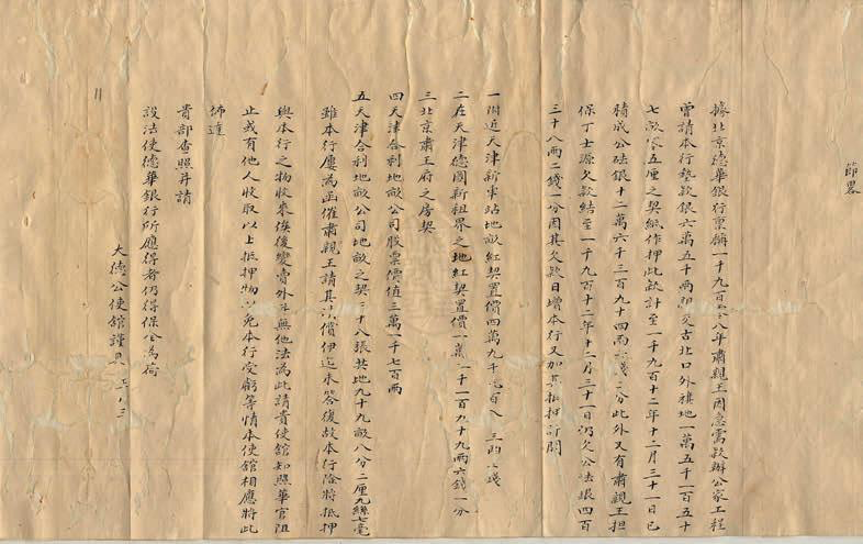 節畧
據北京德華銀行稟稱一千九百零八年肅親王因急需款辦公家工程
曾請本行墊款銀六萬五千兩即交古北口外旗地一萬五千一百五十
七畝零五厘之契紙作押此款計至一千九百十二年十二月三十一日已
積成公砝銀十二萬六千三百九十四兩 錢二分此外又有肅親王担
保丁士源欠款結至一千九百十二年十二月三十一日仍欠公法銀四百
三十八兩二錢一分因其欠款日增本行又加其抵押訂開
一附近天津新車站地畝紅契置價四萬九千 百 三兩 錢
二在天津德國新租界之地紅契置價一萬一千一百九十九兩六錢一分
三北京肅王府之房契
四天津合利地畝公司股票價值三萬一千七百兩
五天津合利地畝公司地畝之契二十八張共地九十九畝八分二厘九絲七毫
雖本行屢為函催肅親王請其 償伊迄未答復故本行除將抵押
與本行之物收來俟後變賣外 無他法為此請貴使舘知照華官阻
止或有他人收取以上抵押物以免本行受虧等情本使舘相應將此
貴部查照并請
設法使德華銀行所應得者仍得保全為荷
大德公使舘謹具